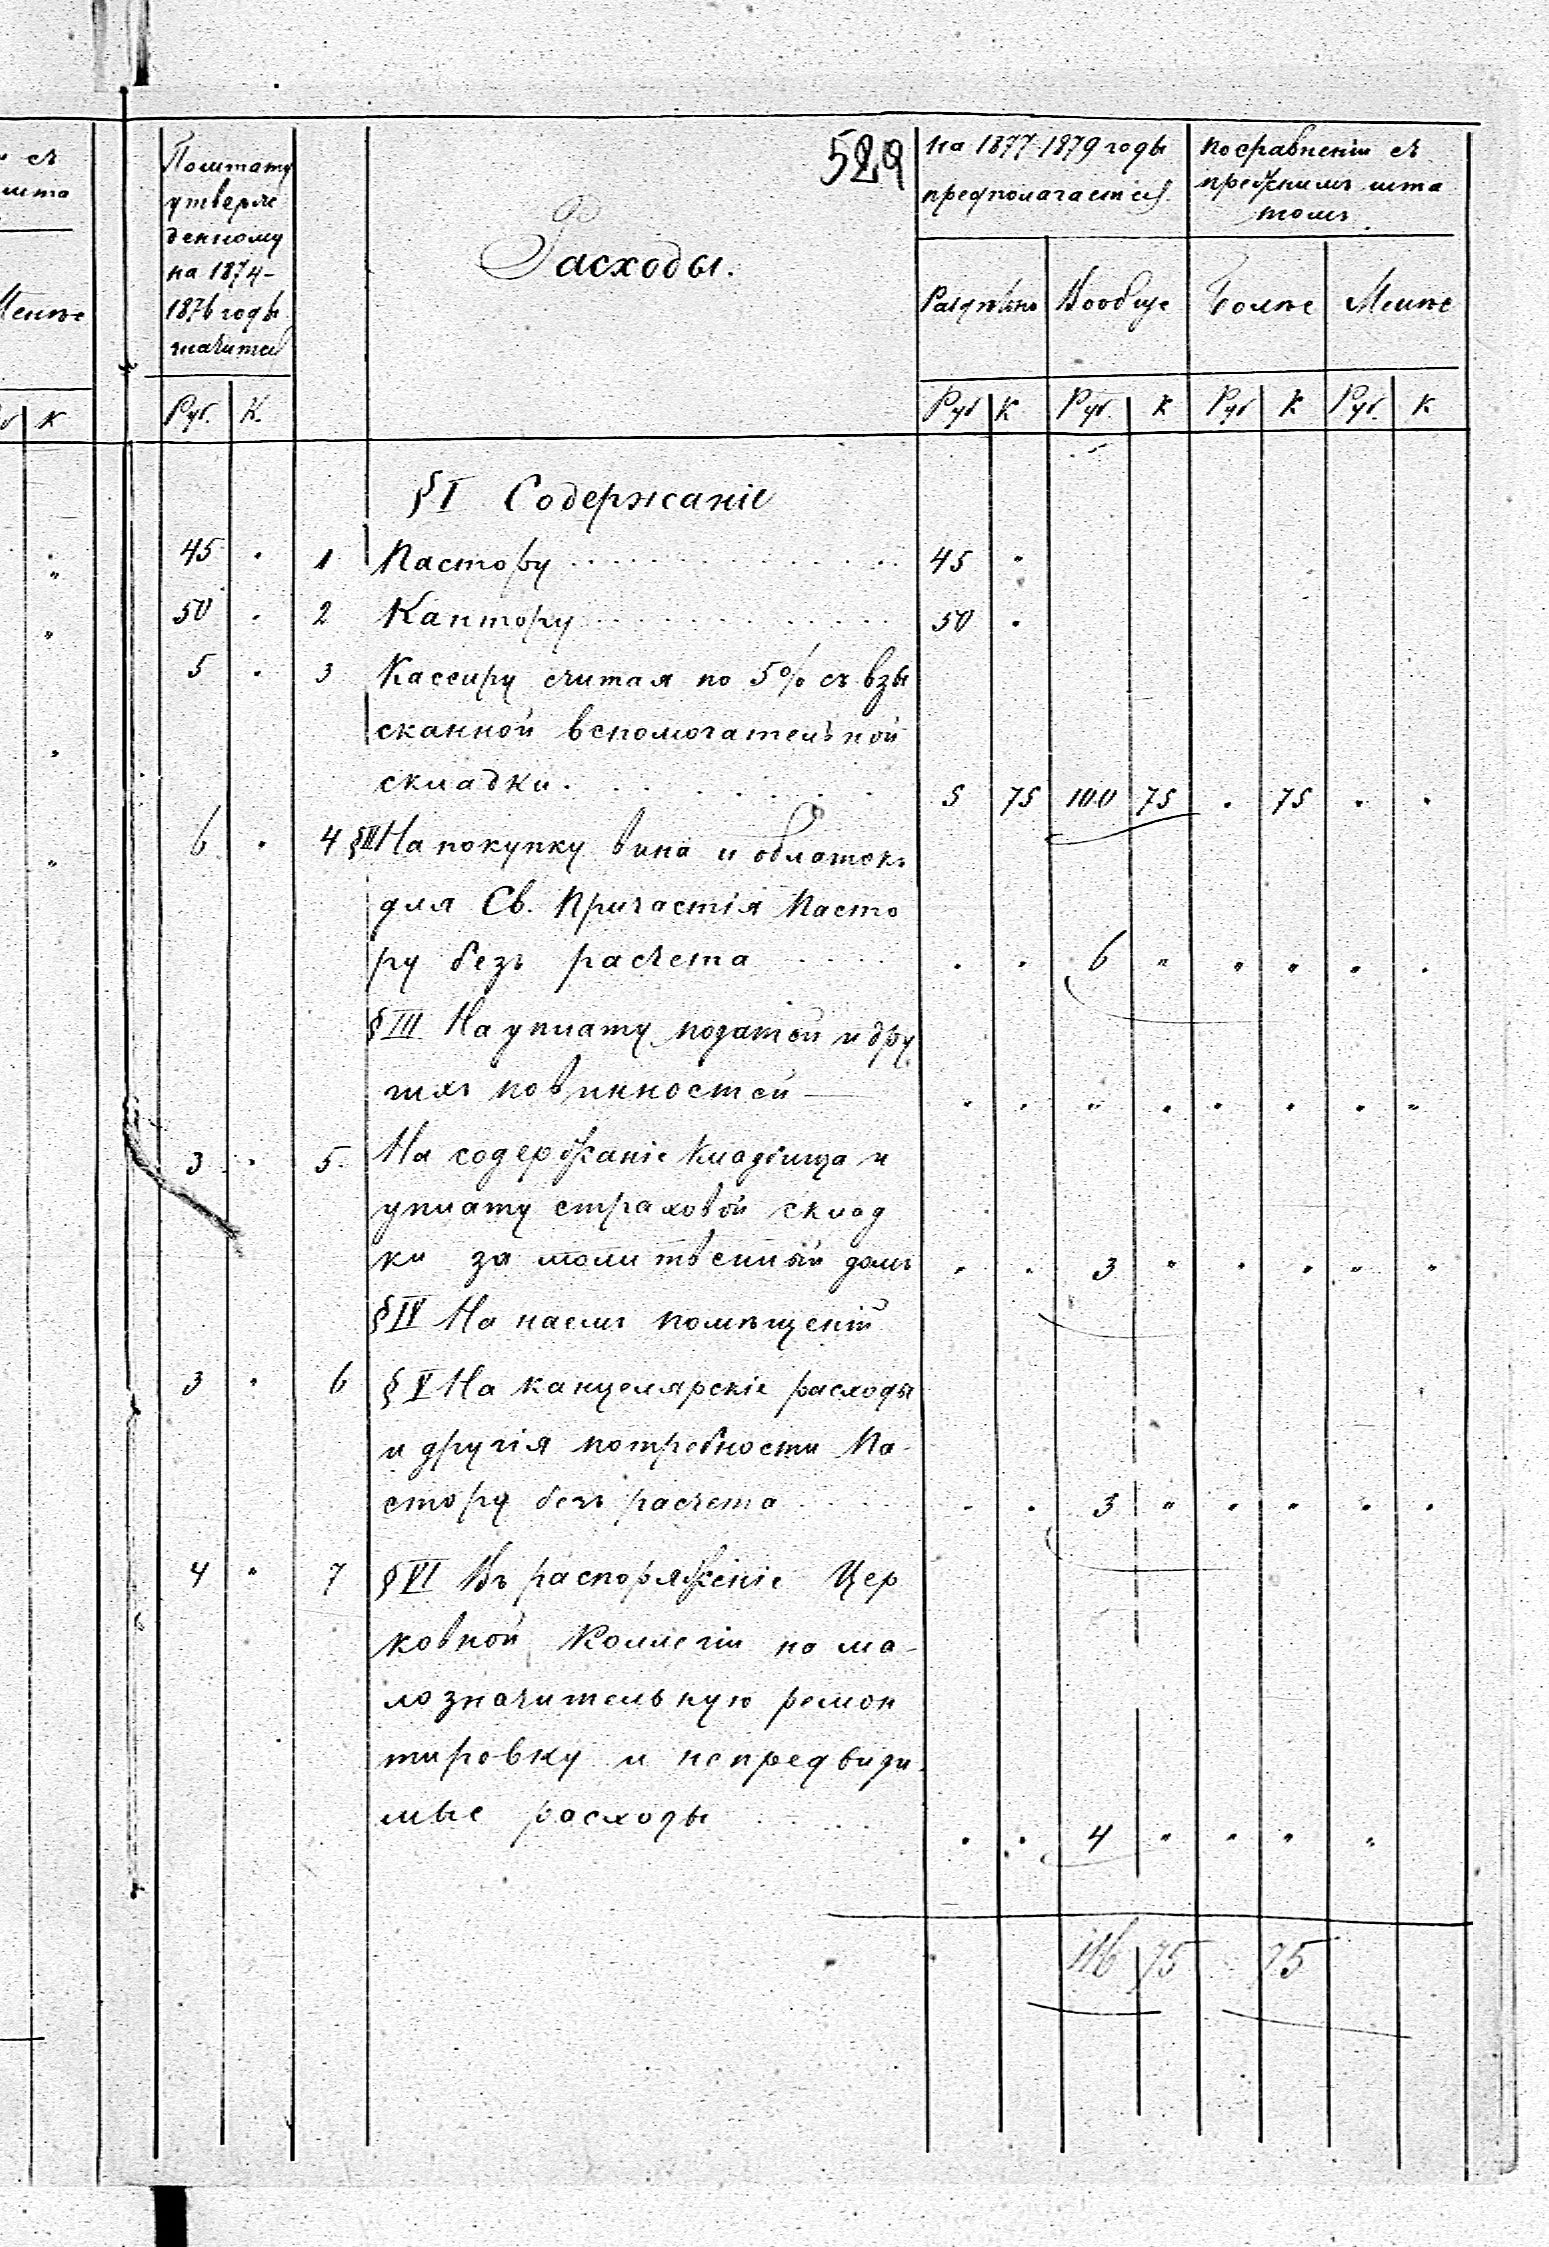 529
ъ съ
шта
Менѣе
К
По штату
утверж
денному
на 1874-
1876 годы
значится
Руб. К.
Расходы.
на 1877-1879 годы
предполагается
Раздѣльно Вообще
Руб К Руб. К
По сравненію съ
прежнимъ шта
томъ
Болѣе Менѣе
Руб К Руб. К
§ I Содержаніе
45 " 1 Пастору 45 "
50 " 2 Кантору 50 "
5 " 3 Кассиру считая по 5% съ взы
сканной вспомогательной
складки. 5 75 100 75 " 75 " "
6 " 4 § II На покупку вина и облатокъ
для Св. Причастія Пасто
ру безъ расчета " " 6 " " " " "
§ III На уплату податей и дру
гихъ повинностей — " " " " " " " "
3 " 5. На содержаніе Кладбища и
уплату страховой склад
ки за молитвенный домъ " " 3 " " " " "
§ IV На наемъ помѣщеній
3 " 6 § V На канцелярскіе расходы
и другія потребности Па-
стору безъ расчета " " 3 " " " " "
4 " 7 § VI Въ распоряженіе Цер
ковной Коллегіи на ма-
лозначительную ремон
тировку и непредвиди-
мые расходы " " 4 " " " "
116 75 75